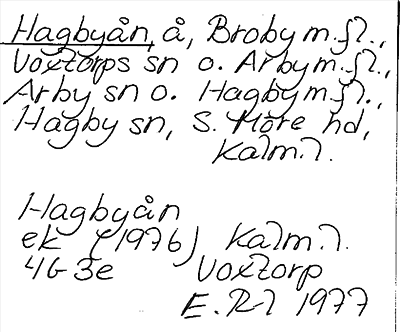 Hagbyån, å, Broby m.fl.,
Voxtorps sn o. Arby m.fl.,
Arby sn o. Hagby m.fl.,
Hagby sn, S. Möre hd,
Kalm. l.
Hagbyån
ek (1976) Kalm. l.
4G 3e Voxtorp
1977